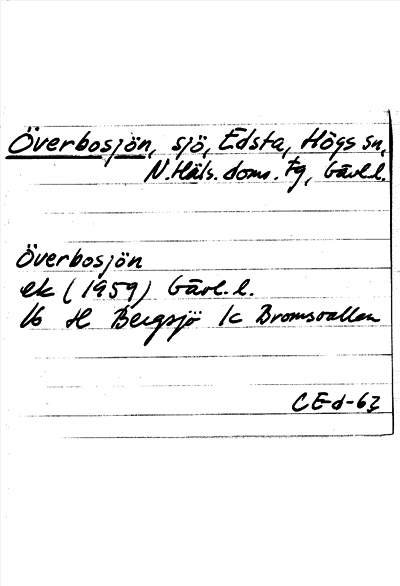 Överbosjön, sjö, Edsta, Högs sn,
N. Häls. doms. fg, Gävl.l.
Överbosjön
ek (1959) Gävl. l.
16 H Bergsjö 1c Bromsvallen
CE-d-63